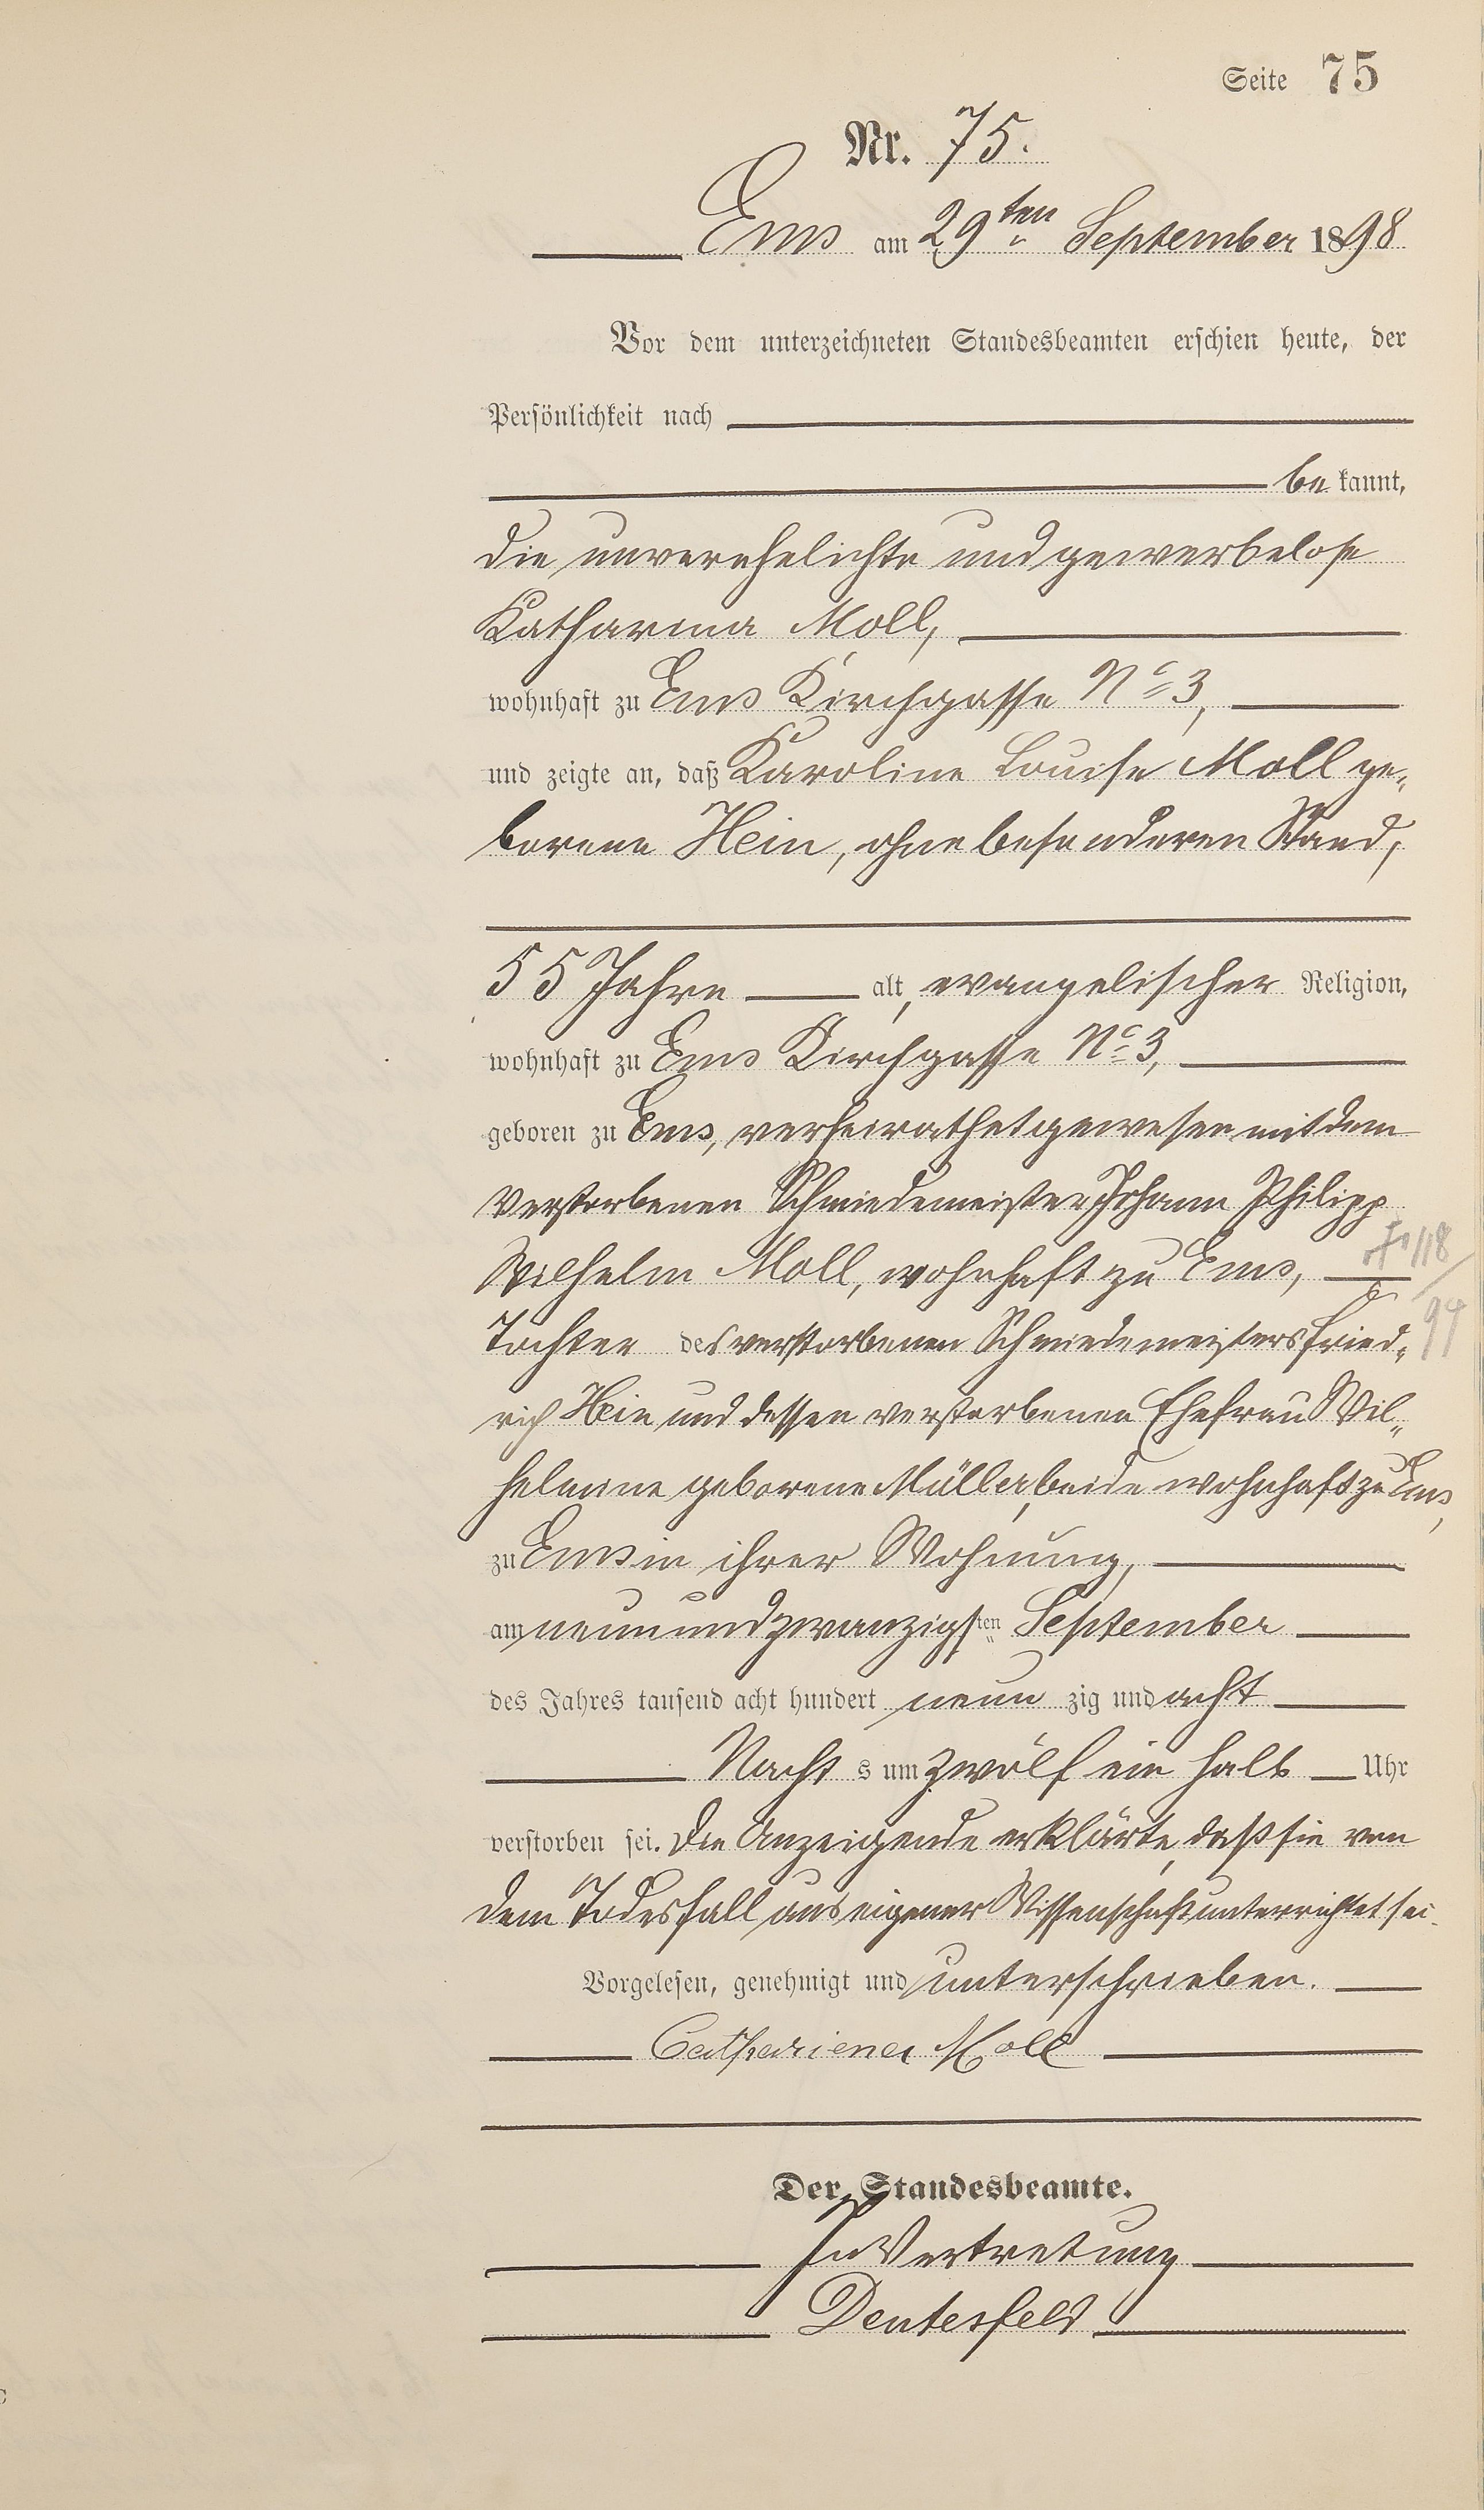 Seite 75
Nr. 75.
Ems am 29ten September 1898
Vor dem unterzeichneten Standesbeamten erschien heute, der
Persönlichkeit nach
be kannt,
die unverehelichte und gewerbelose
Katharina Moll,
wohnhaft zu Ems Kirchgasse No 3,
und zeigte an, daß Karoline Louise Moll ge„
borene Hein, ohne besonderen Stand,
55 Jahre alt, evangelischer Religion,
wohnhaft zu Ems Kirchgasse No 3,
geboren zu Ems, verheirathet gewesen mit dem
verstorbenen Schmiedemeister Johann Philipp
Wilhelm Moll, wohnhaft zu Ems,
118
94
Tochter des verstorbenen Schmiedemeisters Fried„
rich Hein und dessen verstorbenen Ehefrau Wil„
helmine geborene Müller, beide wohnhaft zu Ems,
zu Ems in ihrer Wohnung,
am neunundzwanzigsten September
des Jahres tausend acht hundert neun zig und acht
Nacht s um zwölf ein halb Uhr
verstorben sei. Die Anzeigende erklärte, daß sie von
dem Todesfall aus eigener Wissenschaft unterrichtet sei.
Vorgelesen, genehmigt und unterschrieben.
Cathariena Moll
Der Standesbeamte.
In Vertretung
Deutesfeld